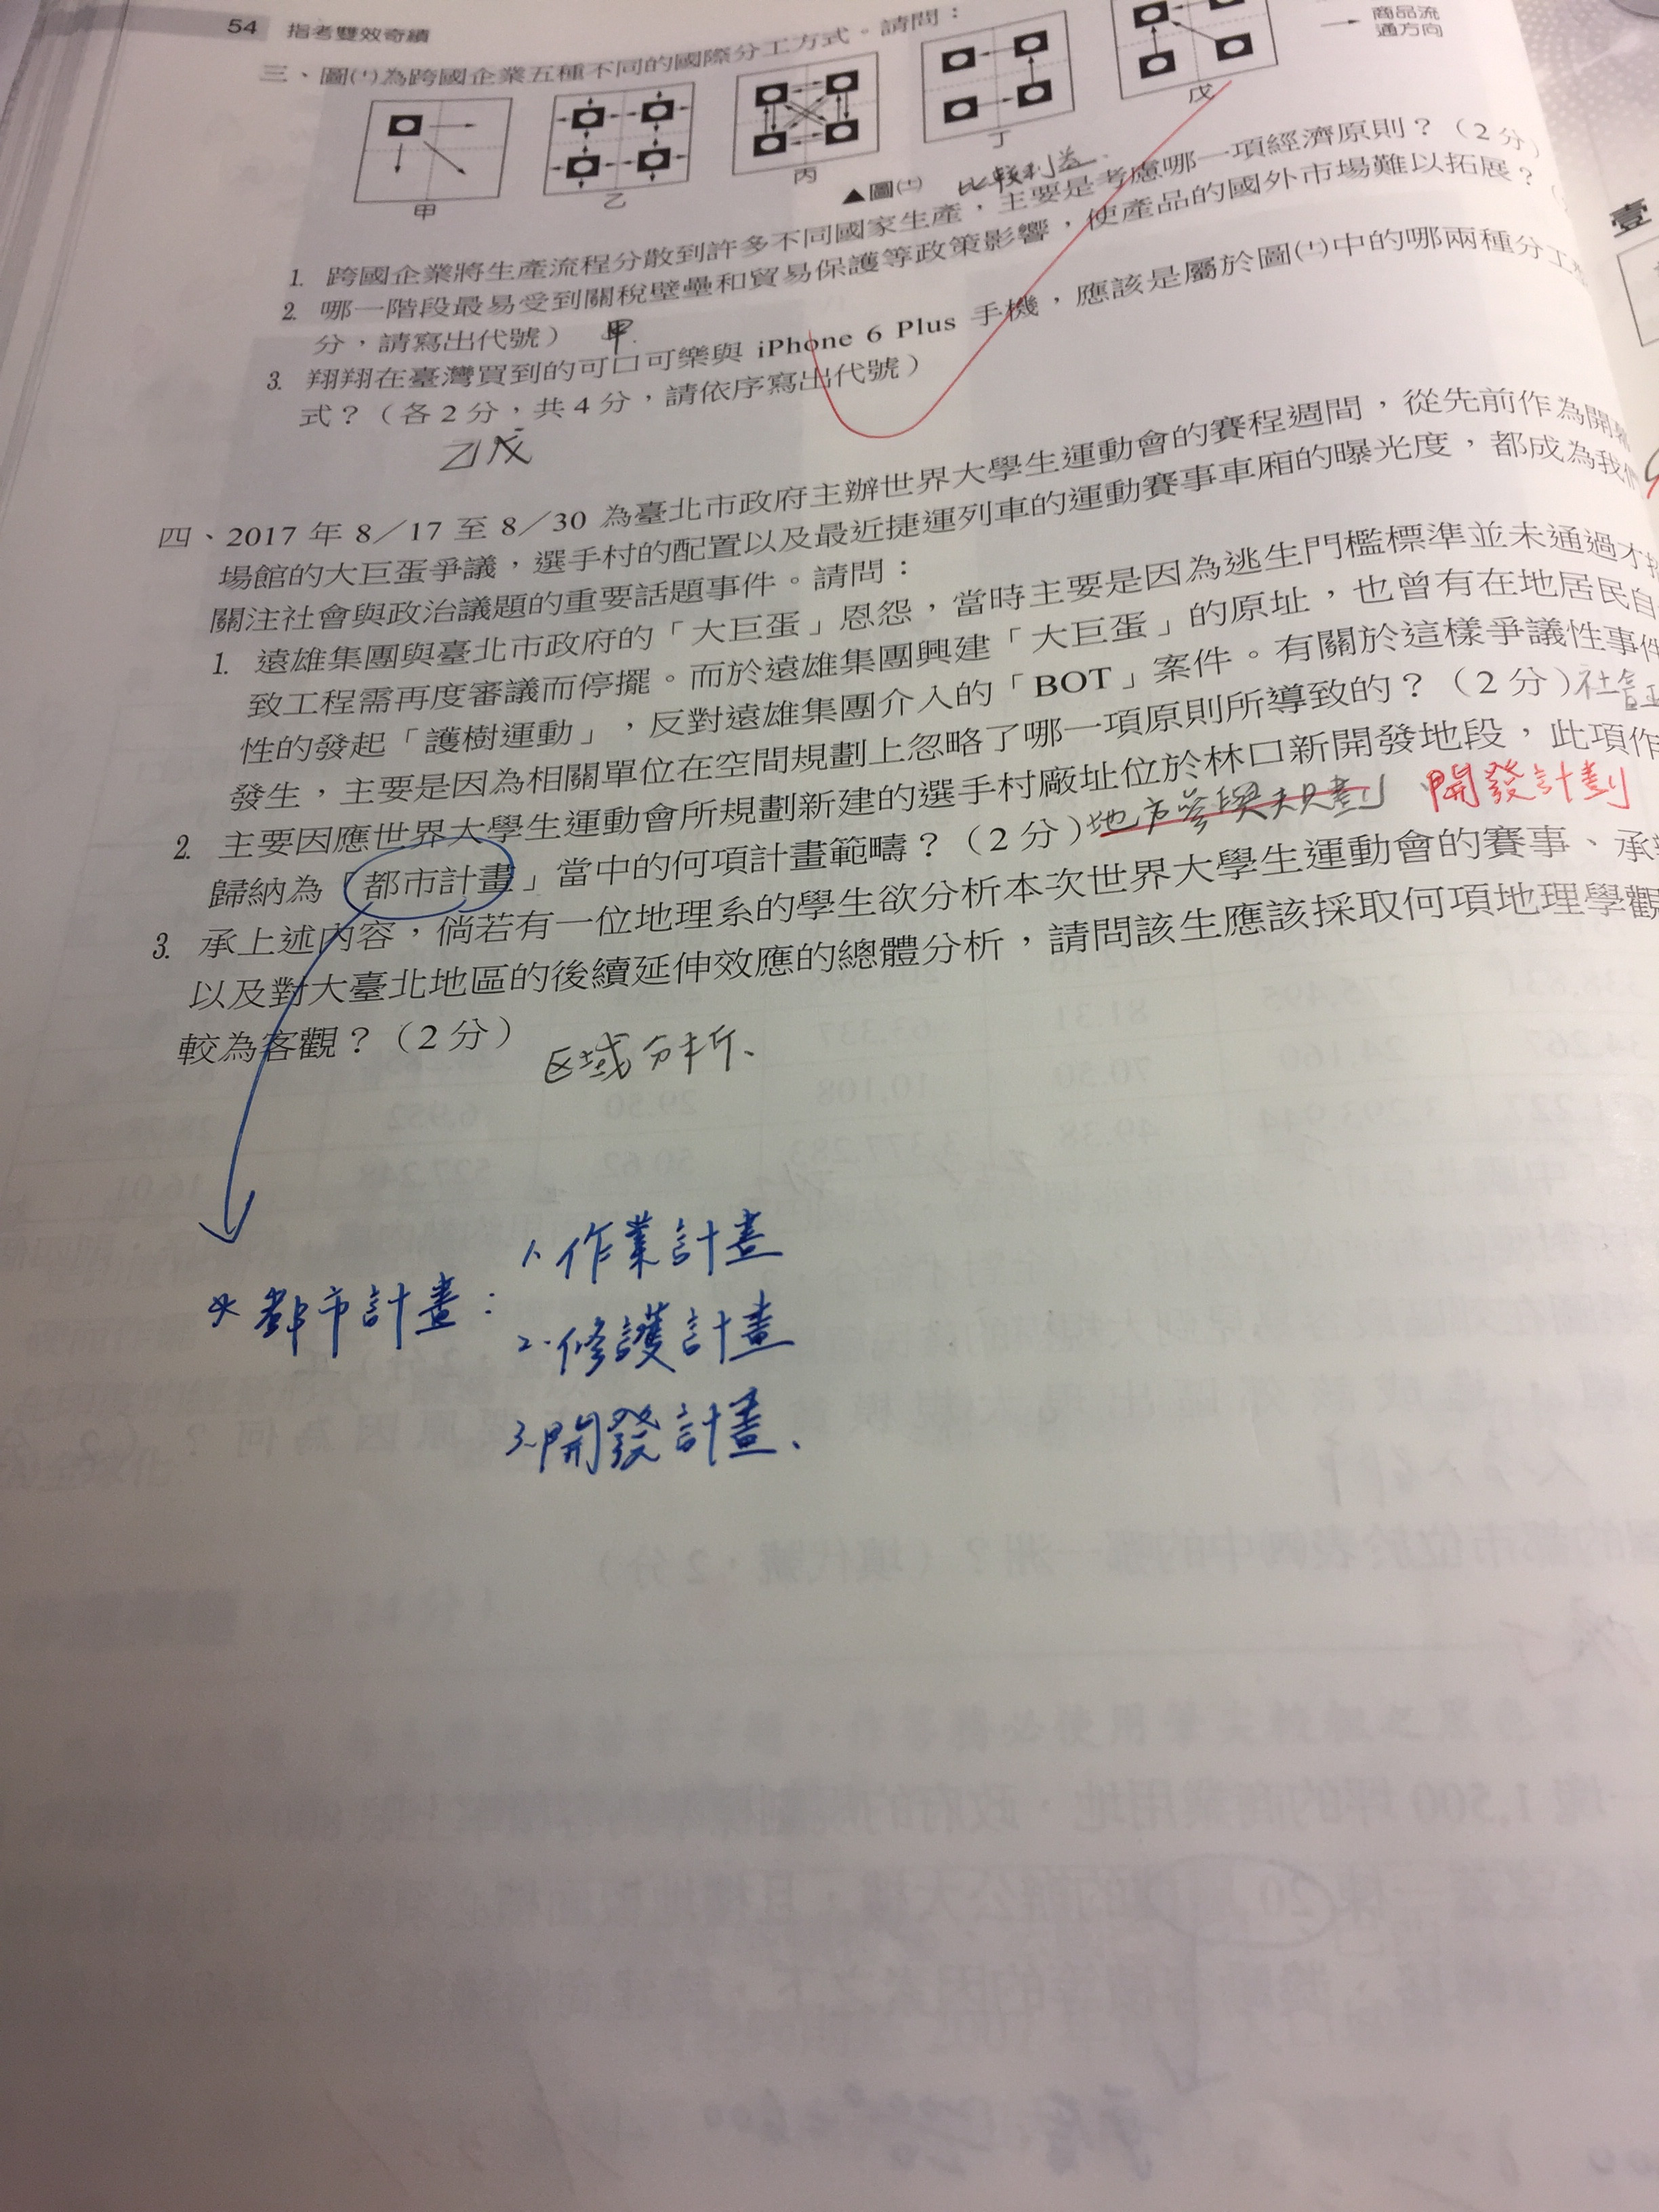 54 指考雙效奇績
商品流
通方向
三、圖㈩為跨國企業五種不同的國際分工方式。請問:
甲
乙
丙
丁
戊
▲圖㈩
比較利益
1. 跨國企業將生產流程分散到許多不同國家生產,主要是考慮哪一項經濟原則?(2分)
2. 哪一階段最易受到關稅壁壘和貿易保護等政策影響,使產品的國外市場難以拓展?(
分,請寫出代號) 甲
3. 翔翔在臺灣買到的可口可樂與 iPhone 6 Plus 手機,應該是屬於圖㈩中的哪兩種分工
式?(各2分,共4分,請依序寫出代號)
乙戊
四、2017 年 8/17 至 8/30 為臺北市政府主辦世界大學生運動會的賽程週間,從先前作為開幕
場館的大巨蛋爭議,選手村的配置以及最近捷運列車的運動賽事車廂的曝光度,都成為我們
關注社會與政治議題的重要話題事件。請問:
1. 遠雄集團與臺北市政府的「大巨蛋」恩怨,當時主要是因為逃生門檻標準並未通過才
致工程需再度審議而停擺。而於遠雄集團興建「大巨蛋」的原址,也曾有在地居民自
性的發起「護樹運動」,反對遠雄集團介入的「BOT」案件。有關於這樣爭議性事件
發生,主要是因為相關單位在空間規劃上忽略了哪一項原則所導致的?(2分)社會
2. 主要因應世界大學生運動會所規劃新建的選手村廠址位於林口新開發地段,此項作
歸納為「都市計畫」當中的何項計畫範疇?(2分) 開發計劃
3. 承上述內容,倘若有一位地理系的學生欲分析本次世界大學生運動會的賽事、承
以及對大臺北地區的後續延伸效應的總體分析,請問該生應該採取何項地理學觀
較為客觀?(2分) 区域分析、
壹
1. 作業計畫
* 都市計畫:
2. 修護計畫
3. 開發計畫、